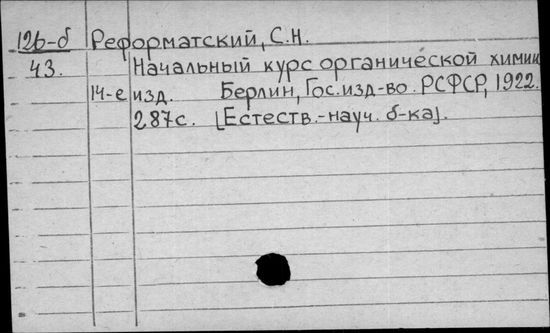 126-б Реформатский, С.Н.
43. Начальный курс органической химии
14-е изд. Берлин, Гос.изд-во. РСФСР, 1922.
287с. [Естеств.-науч. б-ка].